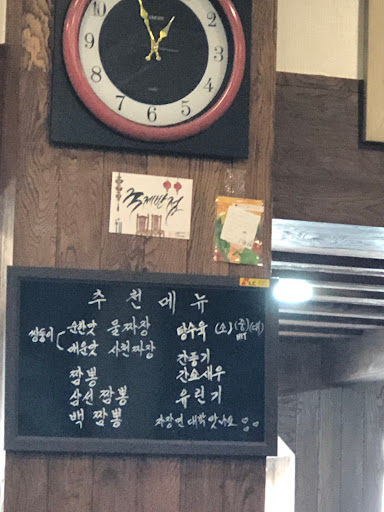 10
9
8
7
6
5
4
3
2
국제반점
추천메뉴
쌍둥이
순한맛 물짜장
매운맛 사천짜장
짬뽕
삼선짬뽕
백짬뽕
탕수육 (소)(중)(대)
깐풍기
깐쇼새우
유린기